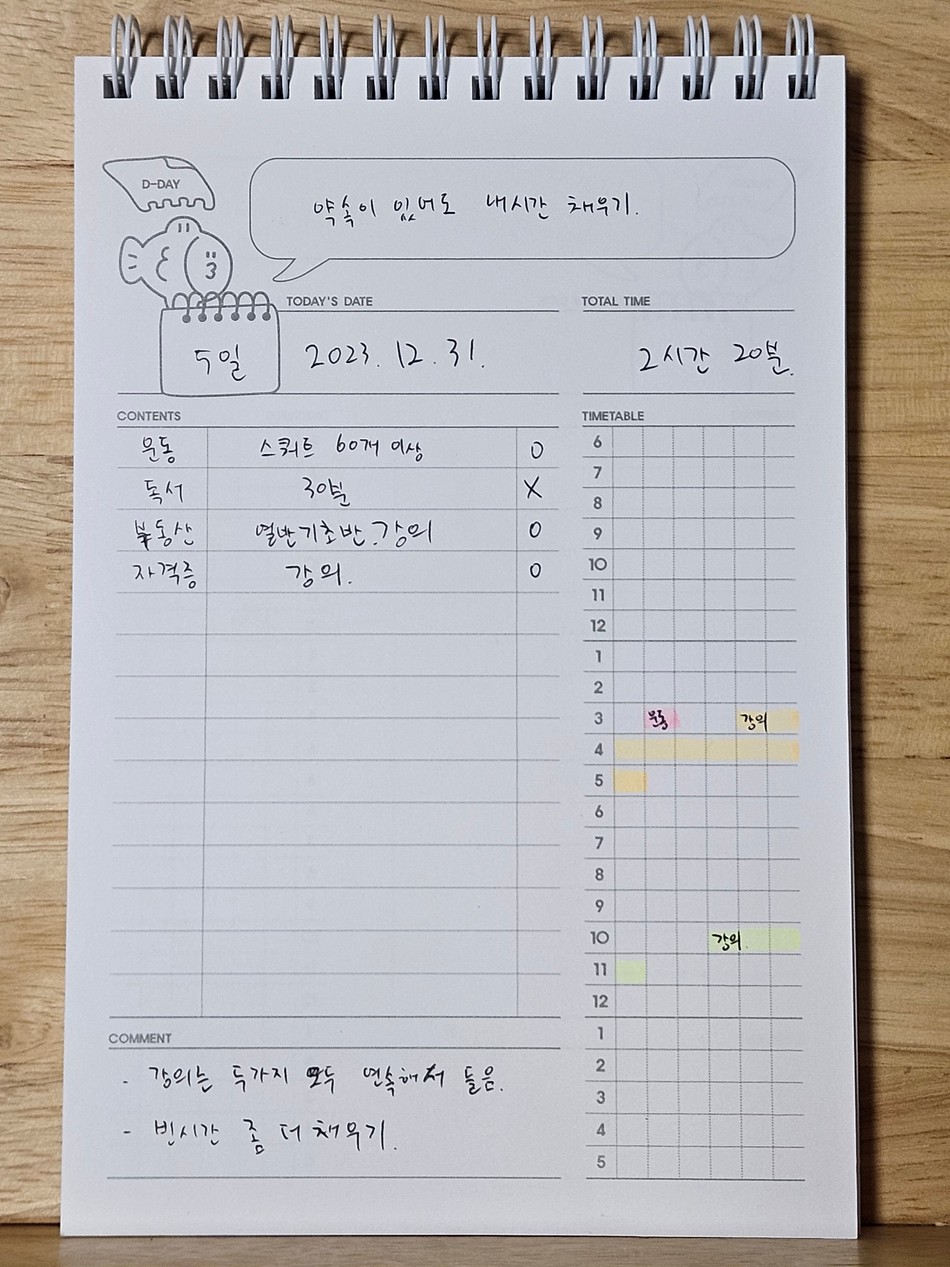 D-DAY
약속이 있어도 내시간 채우기.
TODAY'S DATE
TOTAL TIME
5일
2023. 12. 31.
2시간 20분.
CONTENTS
운동 스쿼트 60개 이상 O
독서 30분 X
부동산 열반기초반.강의 O
자격증 강의. O
TIMETABLE
6
7
8
9
10
11
12
1
2
3 운동 강의
4
5
6
7
8
9
10 강의.
11
12
1
2
3
4
5
COMMENT
- 강의는 두가지 모두 연속해서 들음.
- 빈시간 좀 더 채우기.